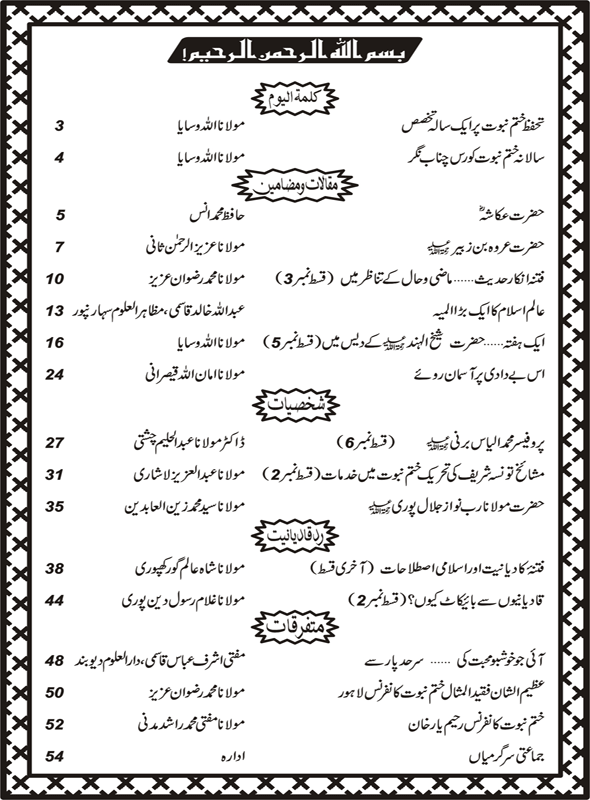 بسم الله الرحمن الرحيم!
کلمۃ الیوم
تحفظ ختم نبوت پر ایک سالہ تخصص مولانا اللہ وسایا 3
سالانہ ختم نبوت کورس چناب نگر مولانا اللہ وسایا 4
مقالات و مضامین
حضرت عکاشہؓ حافظ محمد انس 5
حضرت عروہ بن زبیرؒ مولانا عزیز الرحمٰن ثانی 7
فتنہ انکار حدیث ...... ماضی و حال کے تناظر میں (قسط نمبر 3) مولانا محمد رضوان عزیز 10
عالم اسلام کا ایک بڑا المیہ عبداللہ خالد قاسمی، مظاہر العلوم سہارنپور 13
ایک ہفتہ ...... حضرت شیخ الہندؒ کے دیس میں (قسط نمبر 5) مولانا اللہ وسایا 16
اس بے دادی پر آسمان روئے مولانا امان اللہ قیصرانی 24
شخصیات
پروفیسر محمد الیاس برنیؒ (قسط نمبر 6) ڈاکٹر مولانا عبدالحلیم چشتی 27
مشائخ تونسہ شریف کی تحریک ختم نبوت میں خدمات (قسط نمبر 2) مولانا عبدالعزیز لاشاری 31
حضرت مولانا رب نواز جلال پوریؒ مولانا سید محمد زین العابدین 35
رد قادیانیت
فتنۂ کادیانیت اور اسلامی اصطلاحات (آخری قسط) مولانا شاہ عالم گورکھپوری 38
قادیانیوں سے بائیکاٹ کیوں؟ (قسط نمبر 2) مولانا غلام رسول دین پوری 44
متفرقات
آئی جو خوشبو محبت کی ...... سرحد پار سے مفتی اشرف عباس قاسمی، دارالعلوم دیوبند 48
عظیم الشان فقید المثال ختم نبوت کانفرنس لاہور مولانا محمد رضوان عزیز 50
ختم نبوت کانفرنس رحیم یار خان مولانا مفتی محمد راشد مدنی 52
جماعتی سرگرمیاں ادارہ 54